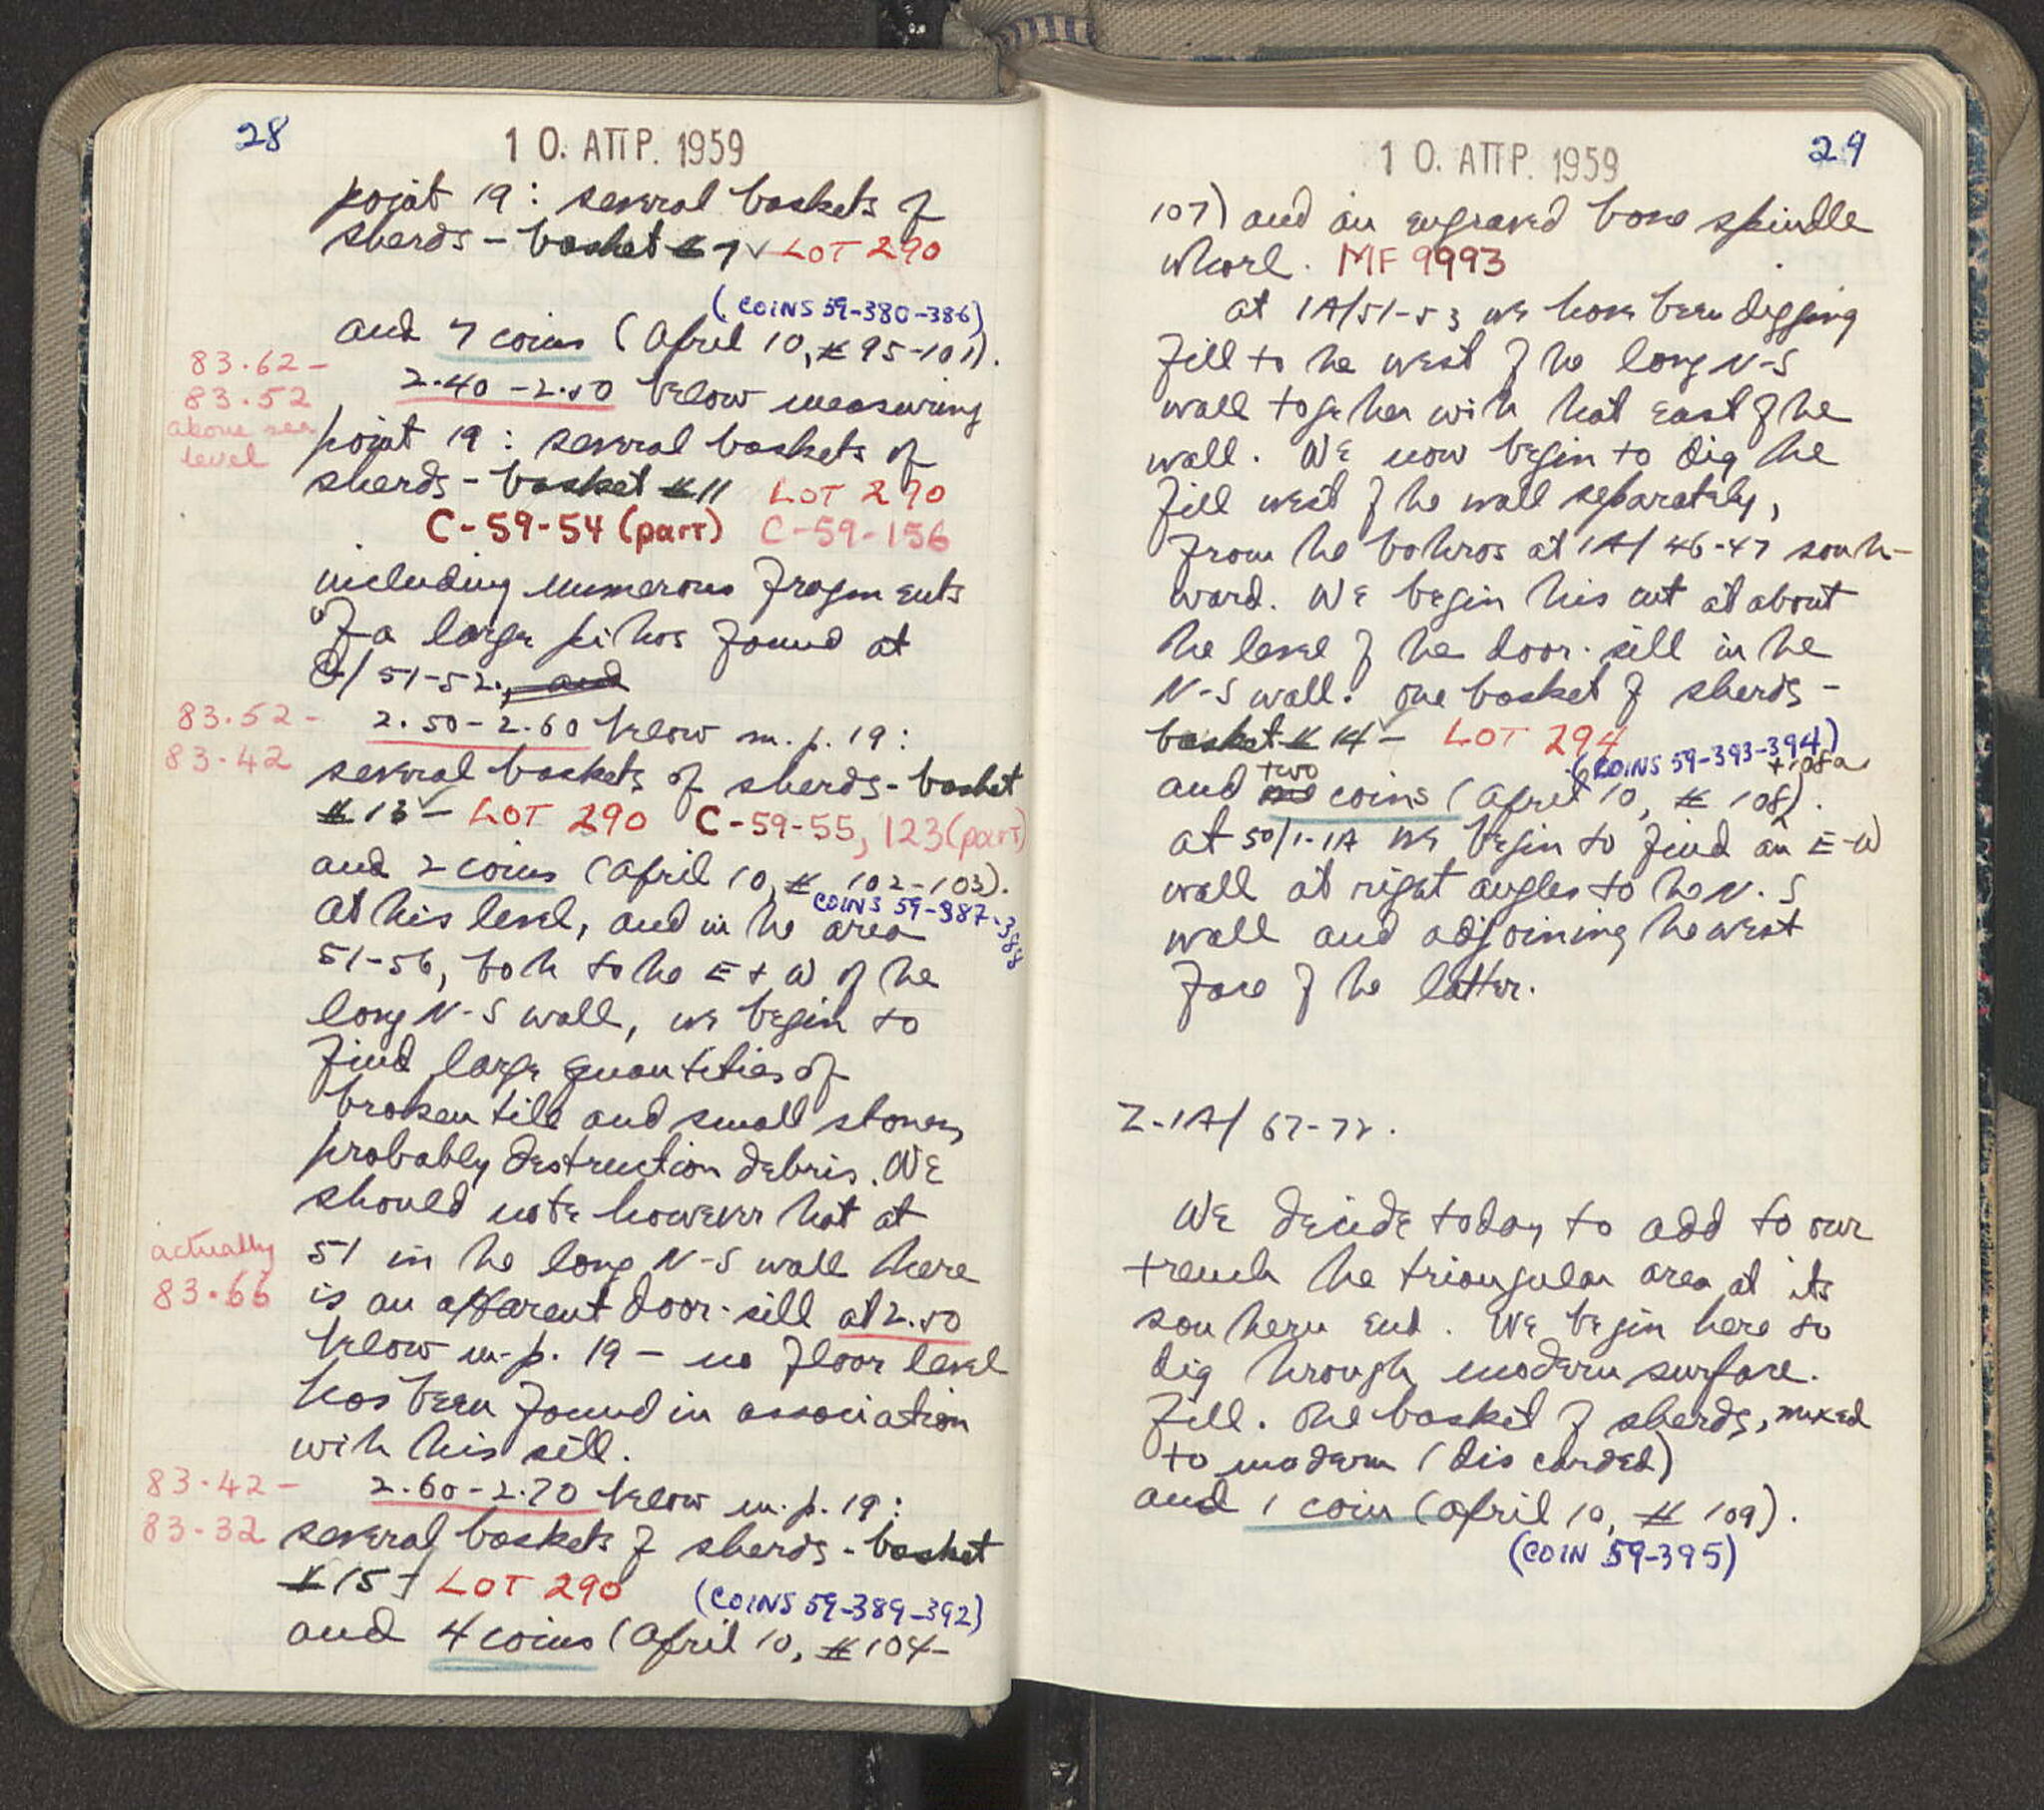 28
1 0. ΑΠΡ. 1959
point 19: several baskets of
sherds - basket # 7 ✓ LOT 290
(COINS 59-380-386)
and 7 coins (April 10, # 95-101).
83.62 -
83.52
above sea
level
2.40 - 2.50 below measuring
point 19: several baskets of
sherds - basket # 11 LOT 290
C-59-54 (part) C-59-156
including numerous fragments
of a large pithos found at
/ 51-52., and
83.52 -
83.42
2.50 - 2.60 below m.p. 19:
several baskets of sherds - basket
# 13 - LOT 290 C-59-55, 123 (part)
and 2 coins (April 10, # 102-103).
COINS 59-387-388
At this level, and in the area
51-56, both to the E + W of the
long N-S wall, we begin to
find large quantities of
broken tile and small stones,
probably destruction debris. We
should note however that at
actually
83.66
51 in the long N-S wall there
is an apparent door-sill at 2.50
below m.p. 19 - no floor level
has been found in association
with this sill.
83.42 -
83.32
2.60 - 2.70 below m.p. 19:
several baskets of sherds - basket
# 15 - LOT 290 (COINS 59-389-392)
and 4 coins (April 10, # 104-
29
1 0. ΑΠΡ. 1959
107) and an engraved bone spindle
whorl. MF 9993
at 1A/51-53 we have been digging
fill to the west of the long N-S
wall together with that east of the
wall. We now begin to dig the
fill west of the wall separately,
from the bothros at 1A/46-47 south-
ward. We begin this cut at about
the level of the door-sill in the
N-S wall. One basket of sherds -
basket # 14 - LOT 294
(COINS 59-393-394)
+ 108a
and two coins (April 10, # 108).
at 50/1-1A we begin to find an E-W
wall at right angles to the N-S
wall and adjoining the west
face of the latter.
Z-1A/ 67-72.
We decide today to add to our
trench the triangular area at its
southern end. We begin here to
dig through modern surface
fill. One basket of sherds, mixed
to modern (discarded)
and 1 coin (April 10, # 109).
(COIN 59-395)